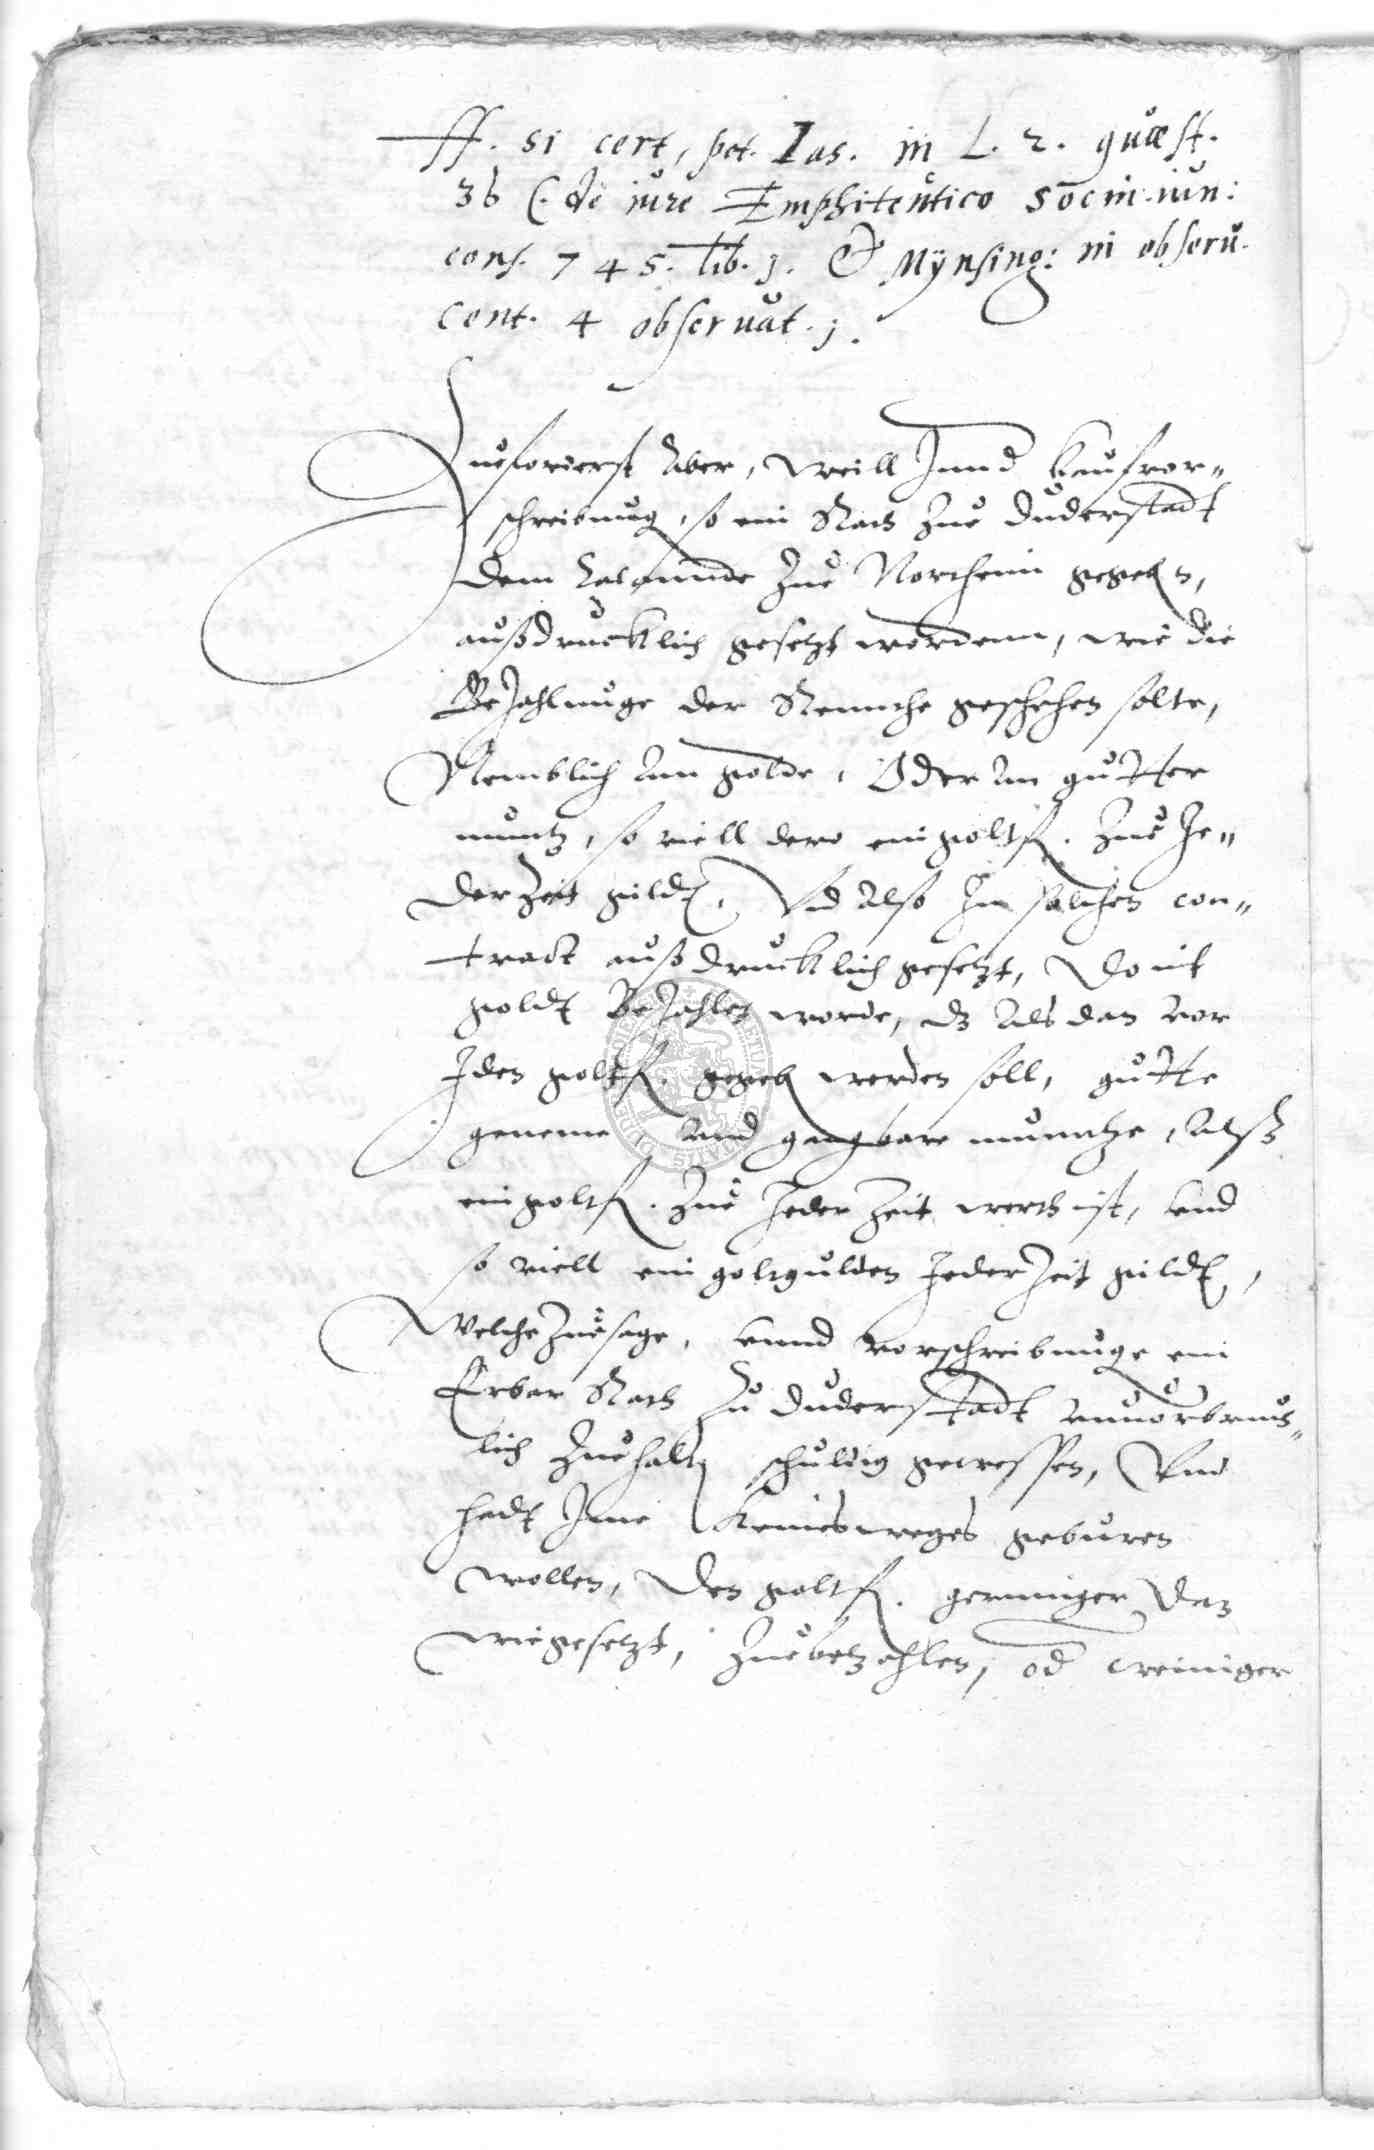 ff. si cert. pet. Ias. in L. 2. quæst.
36 C. de iure Emphiteutico Socin. iun:
cons. 745. lib. j. & Mÿnsing: in obseru.
cent. 4 obseruat. j.
Zuuorderst Aber, weill Jnn d kaufvor"
schreibung, so ein Rath Zue Duderstadt
dem Calannde Zue Northeim gegeben,
außdrucklich gesetzt wordenn, wie die
Bezahlunge der Rennthe geschehen solte,
Nemblich Ann golde, Oder An gutter
muntz, so viell dero ein goltfl. Zue Je"
der Zeit gildt, Vnd Also Jn solchen con"
tract außdrucklich gesetzt, Do mit
goldt Bezahlen worde, dz Als dan vor
Jden goltfl. gegeben werden soll, gutte
geneme, vnd gangbare muntze, Alß
ein goltfl. Zue Jeder Zeit werth ist, vnd
so viell ein goltgulden Jeder Zeit gildt,
Welche Zuesage, vnnd vorschreibunge ein
Erbar Rath Zu Duderstadt vnuorbruch"
lich Zuehalten schuldig gewessen, Vnd
hadt Jme Keinesweges geburen
wollen, Den goltfl. geringer dan
wie gesetzt, Zuebetzahlen, od weiniger